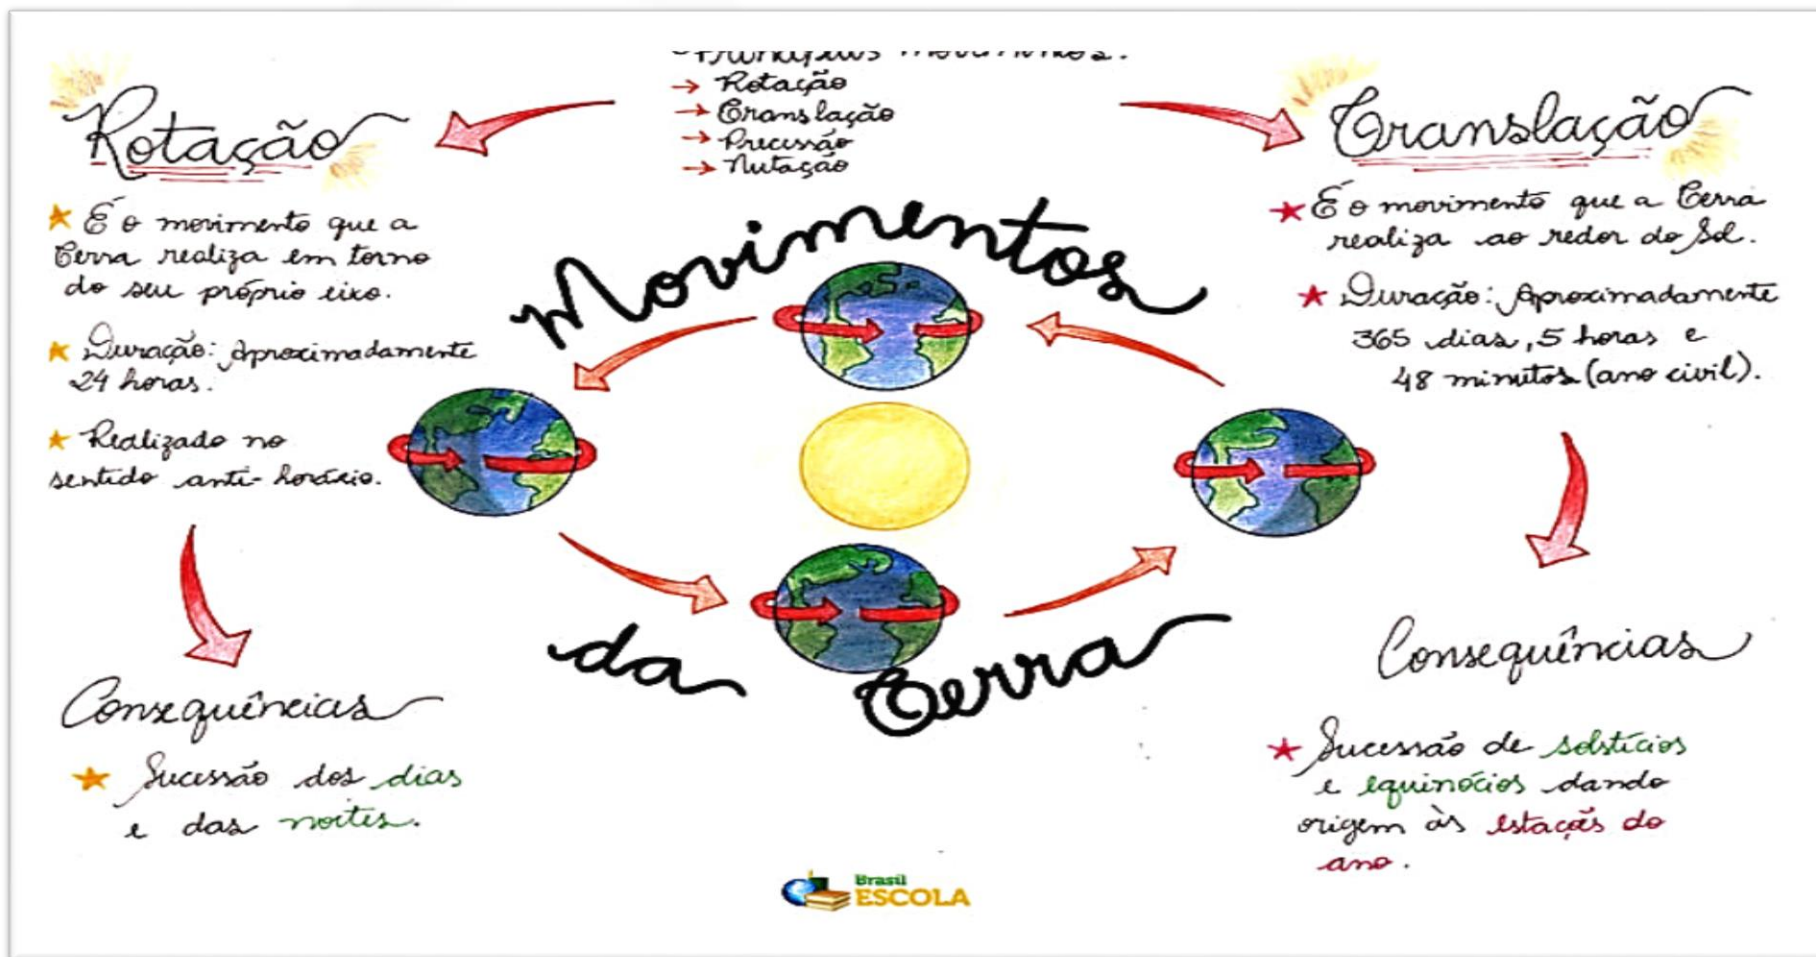 Principais movimentos:
→ Rotação
→ Translação
→ Precessão
→ Nutação
Rotação
★ É o movimento que a
Terra realiza em torno
do seu próprio eixo.
★ Duração: Aproximadamente
24 horas.
★ Realizado no
sentido anti-horário.
Consequências
★ Sucessão dos dias
e das noites.
Movimentos
da Terra
Translação
★ É o movimento que a Terra
realiza ao redor do Sol.
★ Duração: Aproximadamente
365 dias, 5 horas e
48 minutos (ano civil).
Consequências
★ Sucessão de solstícios
e equinócios dando
origem às estações do
ano.
Brasil
ESCOLA